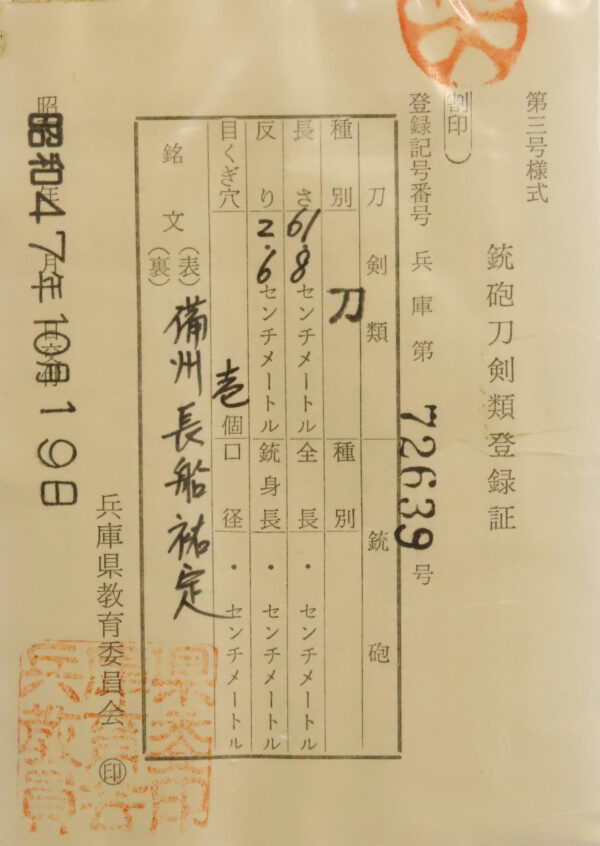 第三号様式
銃砲刀剣類登録証
割印
登録記号番号 兵庫第 72639 号
刀剣類 銃砲
種別 刀 種別
長さ 61.8 センチメートル 全長 ・ センチメートル
反り 2.6 センチメートル 銃身長 ・ センチメートル
目くぎ穴 壱 個 口径 ・ センチメートル
銘文 (表) 備州長船祐定
(裏)
昭和47年10月19日
兵庫県教育委員会 印